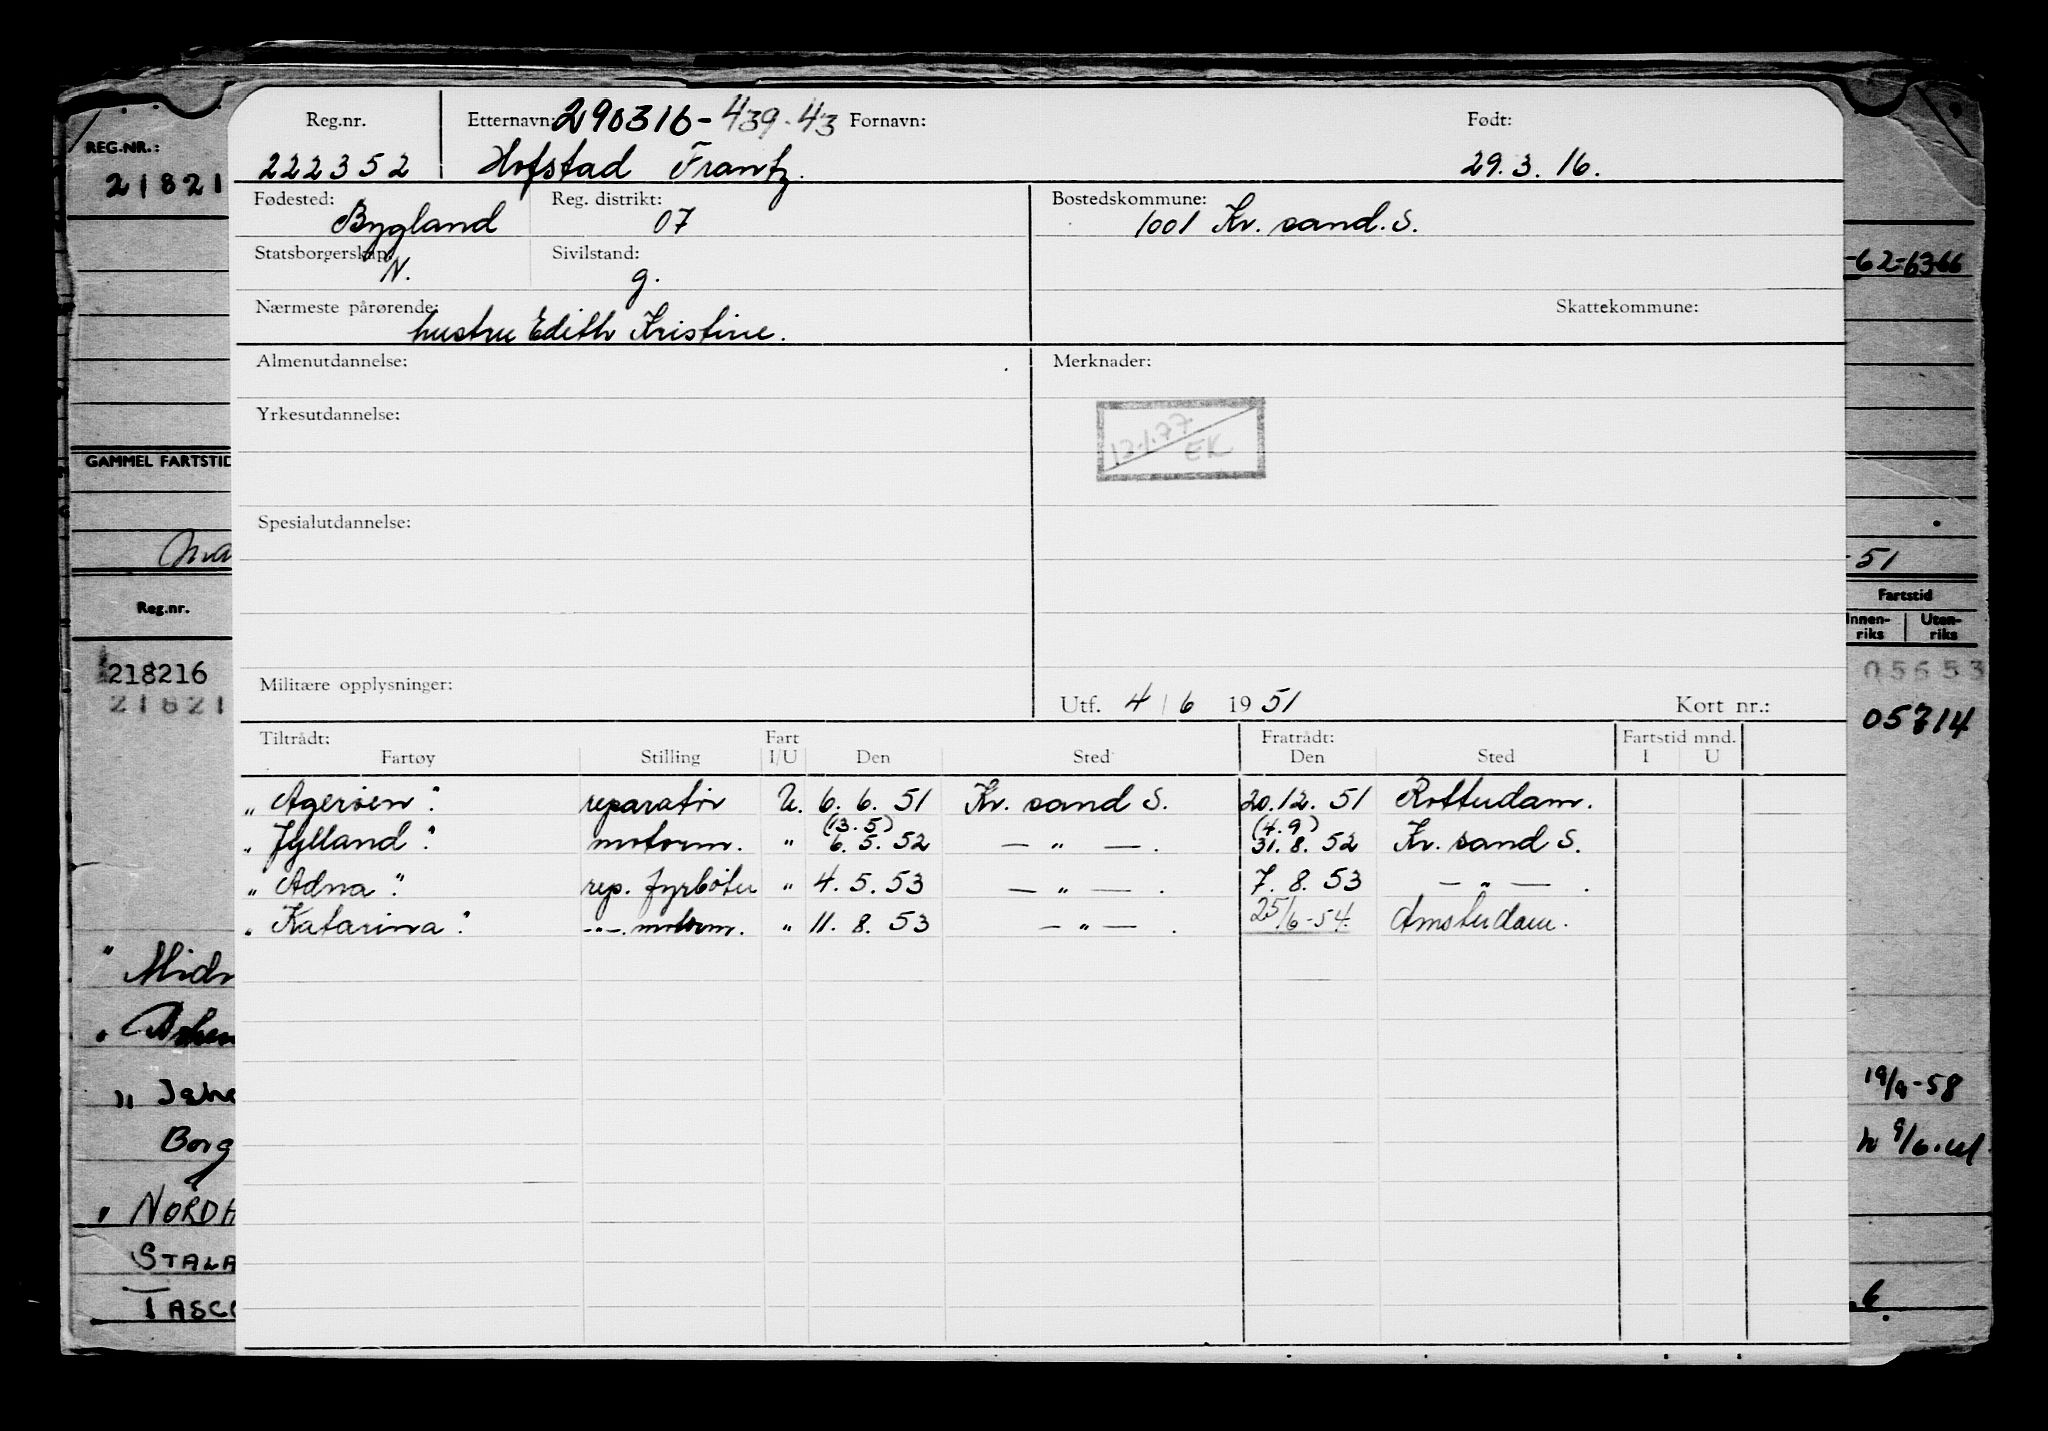 Reg.nr. Etternavn: 290316-439-43 Fornavn: Født:
222352 Hofstad Frantz. 29.3.16.
Fødested: Reg. distrikt: Bostedskommune:
Bygland 07 1001 Kr. sand. S.
Statsborgerskap: Sivilstand:
N. g.
Nærmeste pårørende: Skattekommune:
hustru Edith Kristine.
Almenutdannelse: Merknader:
Yrkesutdannelse:
12.1.77 EK
Spesialutdannelse:
Militære opplysninger:
Utf. 4/6 1951 Kort nr.:
Tiltrådt: Fart Fratrådt: Fartstid mnd.
Fartøy Stilling I/U Den Sted Den Sted I U
"Agerøen" reparatør U. 6. 6. 51 Kr. sand S. 20.12.51 Rotterdam.
(13.5) (4.9)
"Jylland" motorm. " 6.5.52 — " — . 31.8.52 Kr. sand S.
"Adna" rep. fyrbøter " 4.5.53 — " — . 7.8.53 — " — .
"Katarina" -"-. motorm. " 11.8.53 — " — . 25/6-54. Amsterdam.
REG.NR.:
21821
GAMMEL FARTSTID
Reg.nr.
218216
21821
"Midn
"Jahr
Borg
"NORDH
STALA
TASCO
-62-63-66
-51
Fartstid
Innen-riks Uten-riks
05653
05714
19/9-58
6.